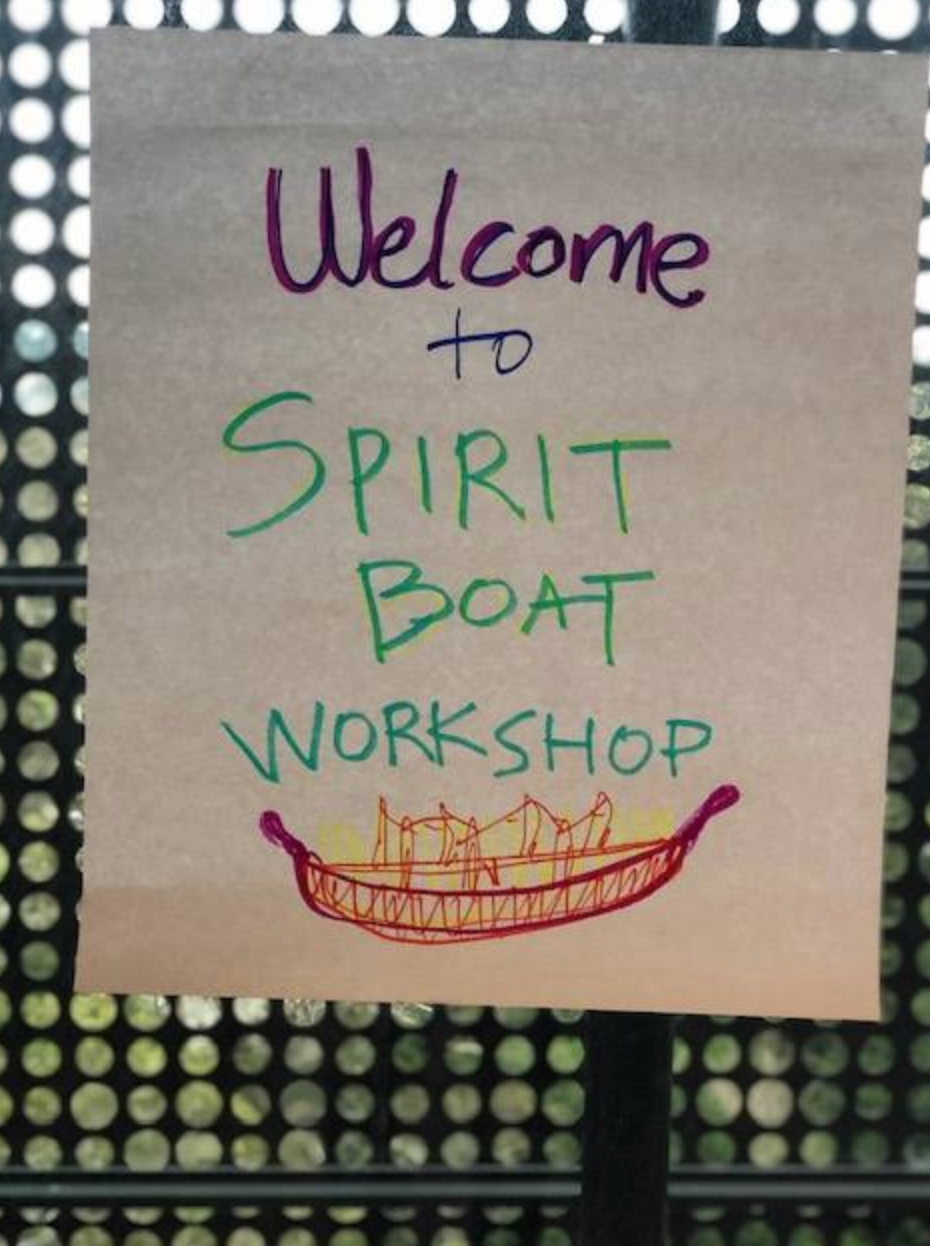 Welcome
to
SPIRIT
BOAT
WORKSHOP